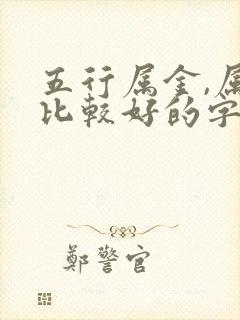 五行属金,属
比较好的字
鄭警官